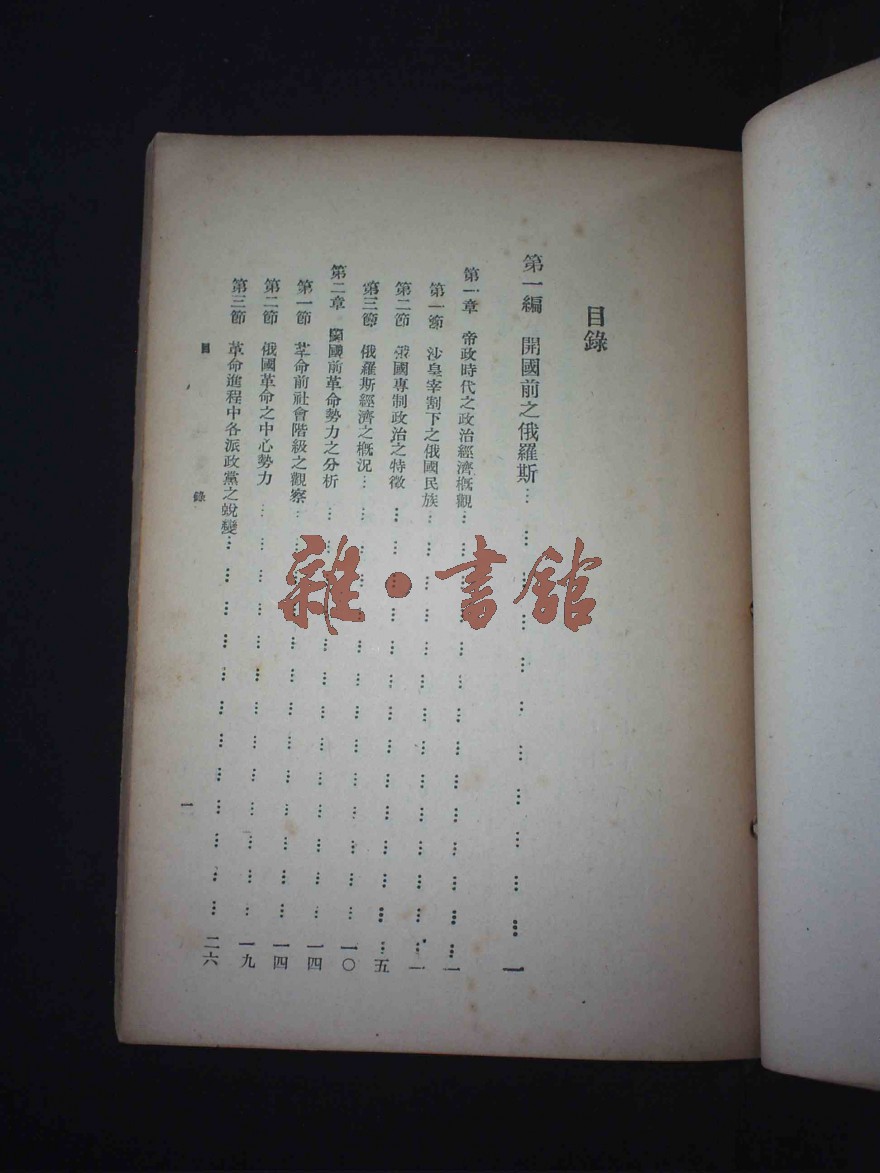 目錄
第一編 開國前之俄羅斯……一
第一章 帝政時代之政治經濟概觀……一
第一節 沙皇宰割下之俄國民族……一
第二節 俄國專制政治之特徵……五
第三節 俄羅斯經濟之概況……一〇
第二章 開國前革命勢力之分析……一四
第一節 革命前社會階級之觀察……一四
第二節 俄國革命之中心勢力……一九
第三節 革命進程中各派政黨之蛻變……二六
目錄
一
雜·書館